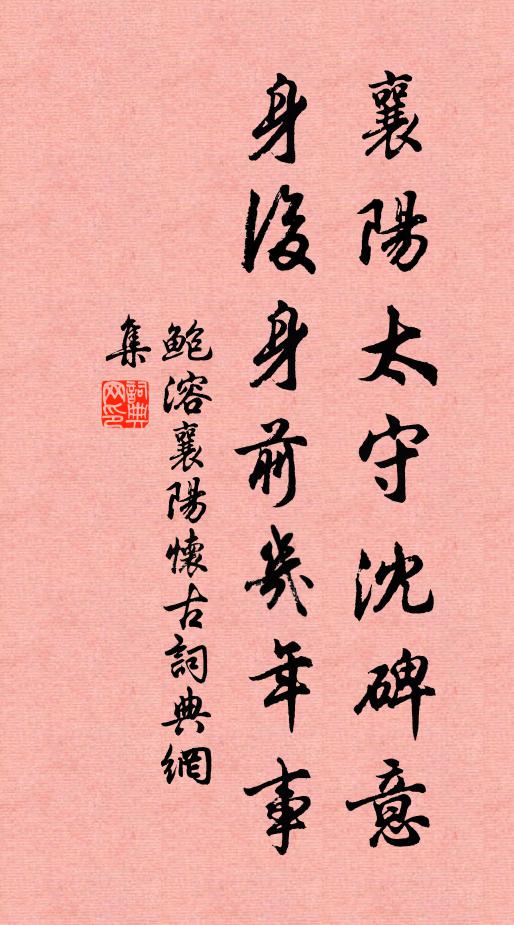 襄陽太守沈碑意
身後身前幾年事
鮑溶襄陽懷古詞典網
集
詞典網印